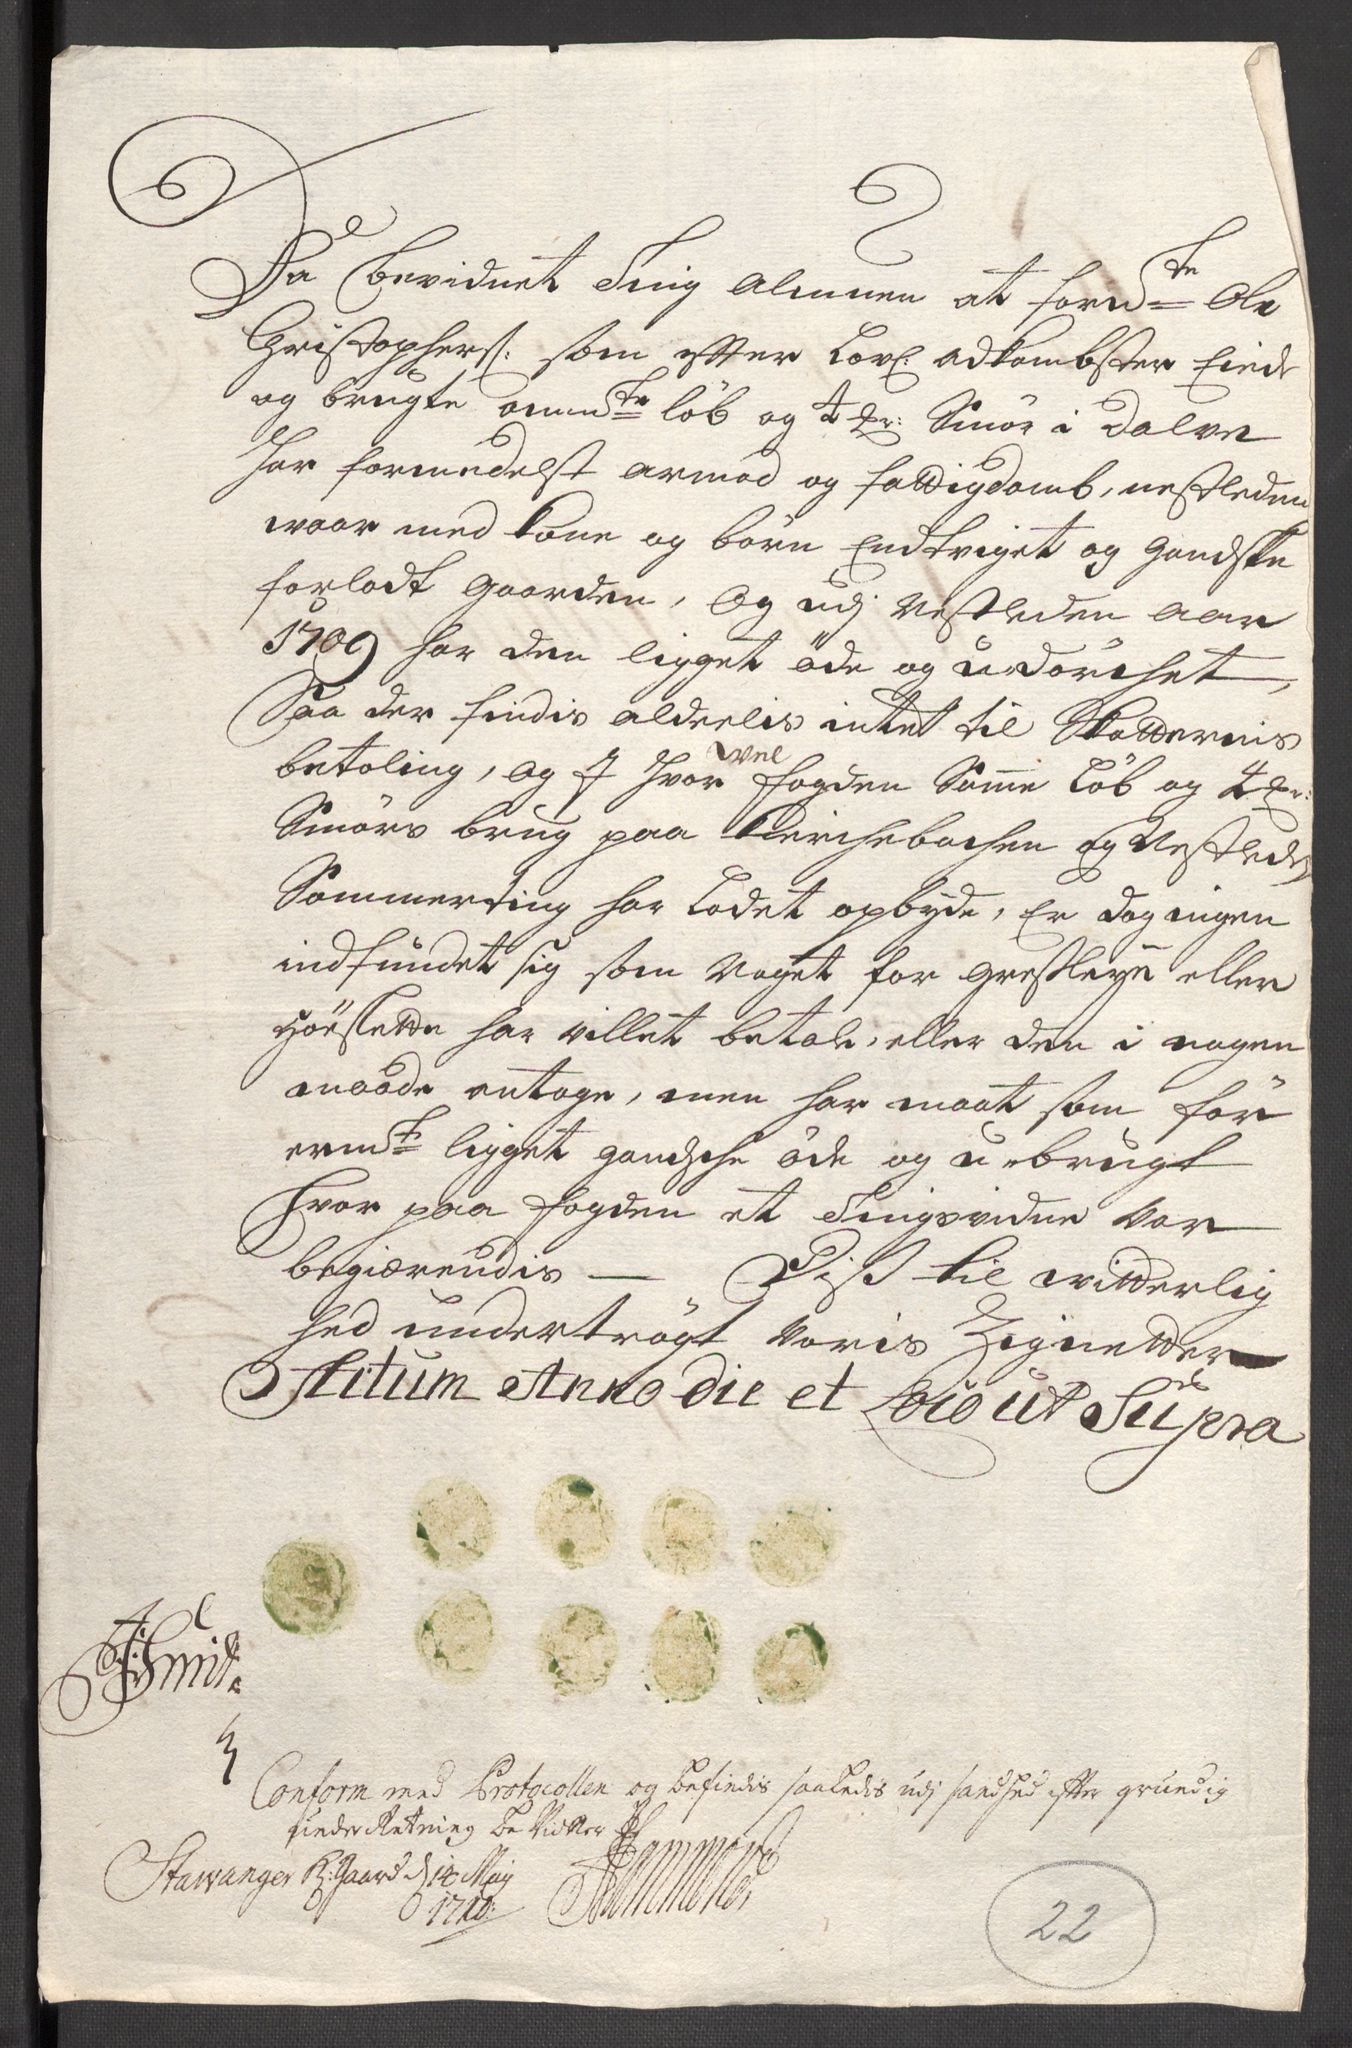 Da bevidnet Ting Almuen at formte Ole
Christophers: som efter Lovl: adkombster Eiede
og brugte ommte løb og 4 mr: Smör i Dalve
har formedelst armod og fattigdomb, nestleden
waar med kone og börn Endtviget og gandske
forladt gaarden, Og udj nestleden aar
1709 har den ligget öde og u-dörchet,
Saa der findis aldeelis intet til Skatternis
betaling, og J hvor vel fogden Samme Löb og 4 mr:
Smörs brug paa Kirchebachen og Nestleden
Sommerting har Ladet opbyde, Er dog ingen
indfundet sig som noget for gresleye eller
Höeslette har villet betale, eller den i nogen
maade antage, men har maat som för
ermt ligget gandsche öde og u-brugt
Hvor paa fogden et Tingsvidne var
begiærendis — Dis til witterlig
hed undertrögt voris Zignetter
Actum Anno die et Loco ut Supra
Smit
Conform med Protocollen og befindis saaledis udj sandhed efter grundig
underRetning be Vidner
Stawanger K:gaard d 14 Maij
1710: Hammond
22